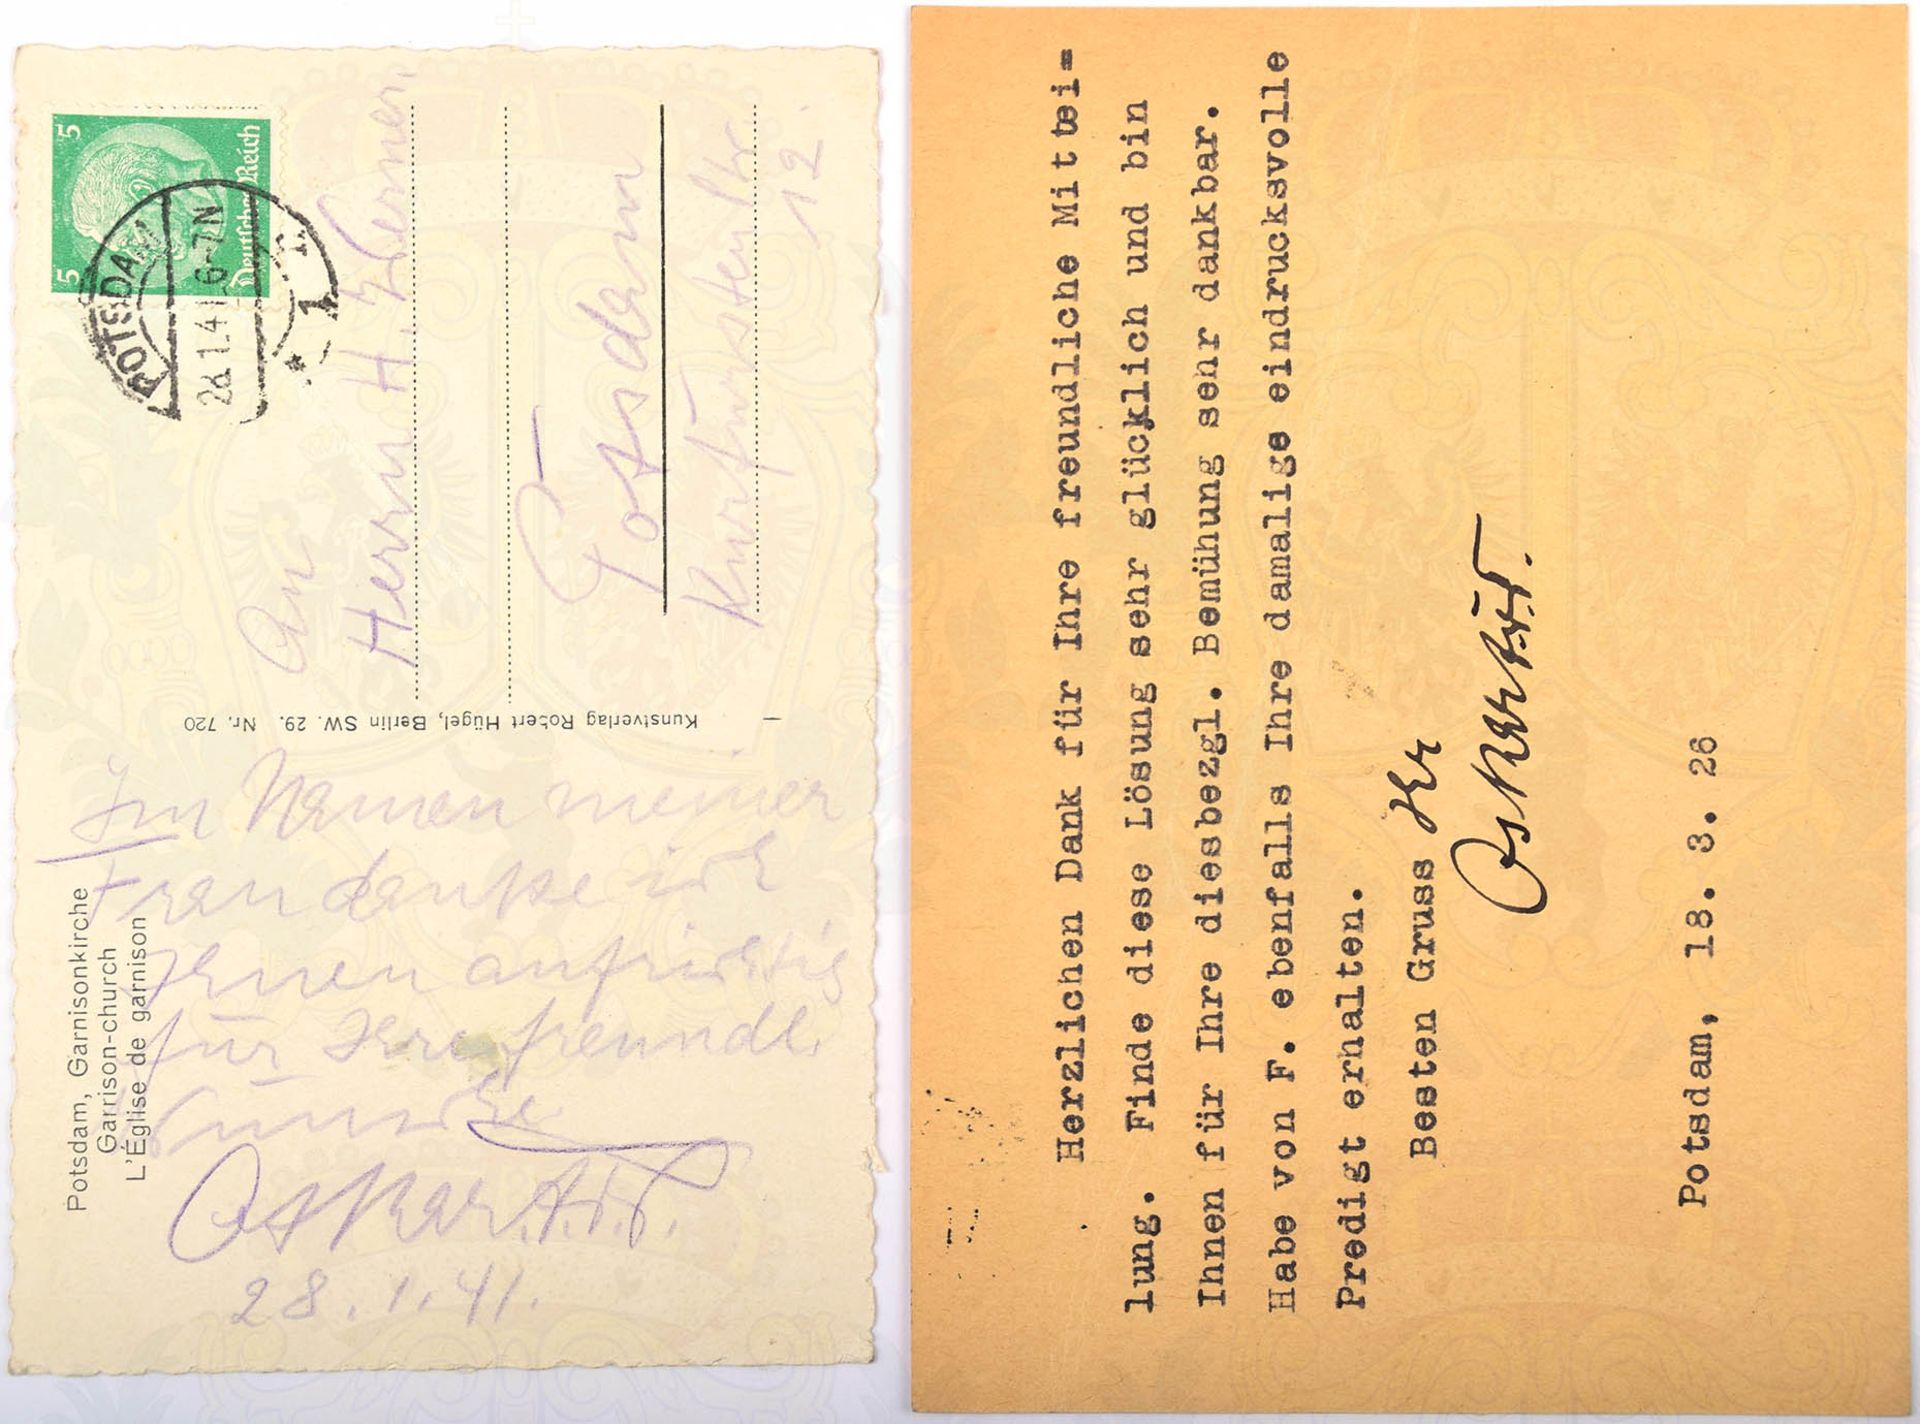 Potsdam, Garnisonkirche
Garrison-church
L'Église de garnison
Im Namen meiner
Frau danke ich
Ihnen aufrichtig
für Ihre freundl.
Wünsche
Oskar P. v. P.
28.1.41.
Kunstverlag Robert Hügel, Berlin SW. 29. Nr. 720
5 5
Deutsches Reich
POTSDAM
28.1.41 6-7N
1
An
Herrn H. Werner
Potsdam
Kurfürstenstr.
12.
Herzlichen Dank für Ihre freundliche Mittei=
lung. Finde diese Lösung sehr glücklich und bin
Ihnen für Ihre diesbezgl. Bemühung sehr dankbar.
Habe von F. ebenfalls Ihre damalige eindrucksvolle
Predigt erhalten.
Besten Gruss Ihr
Oskar
Potsdam, 18. 3. 26